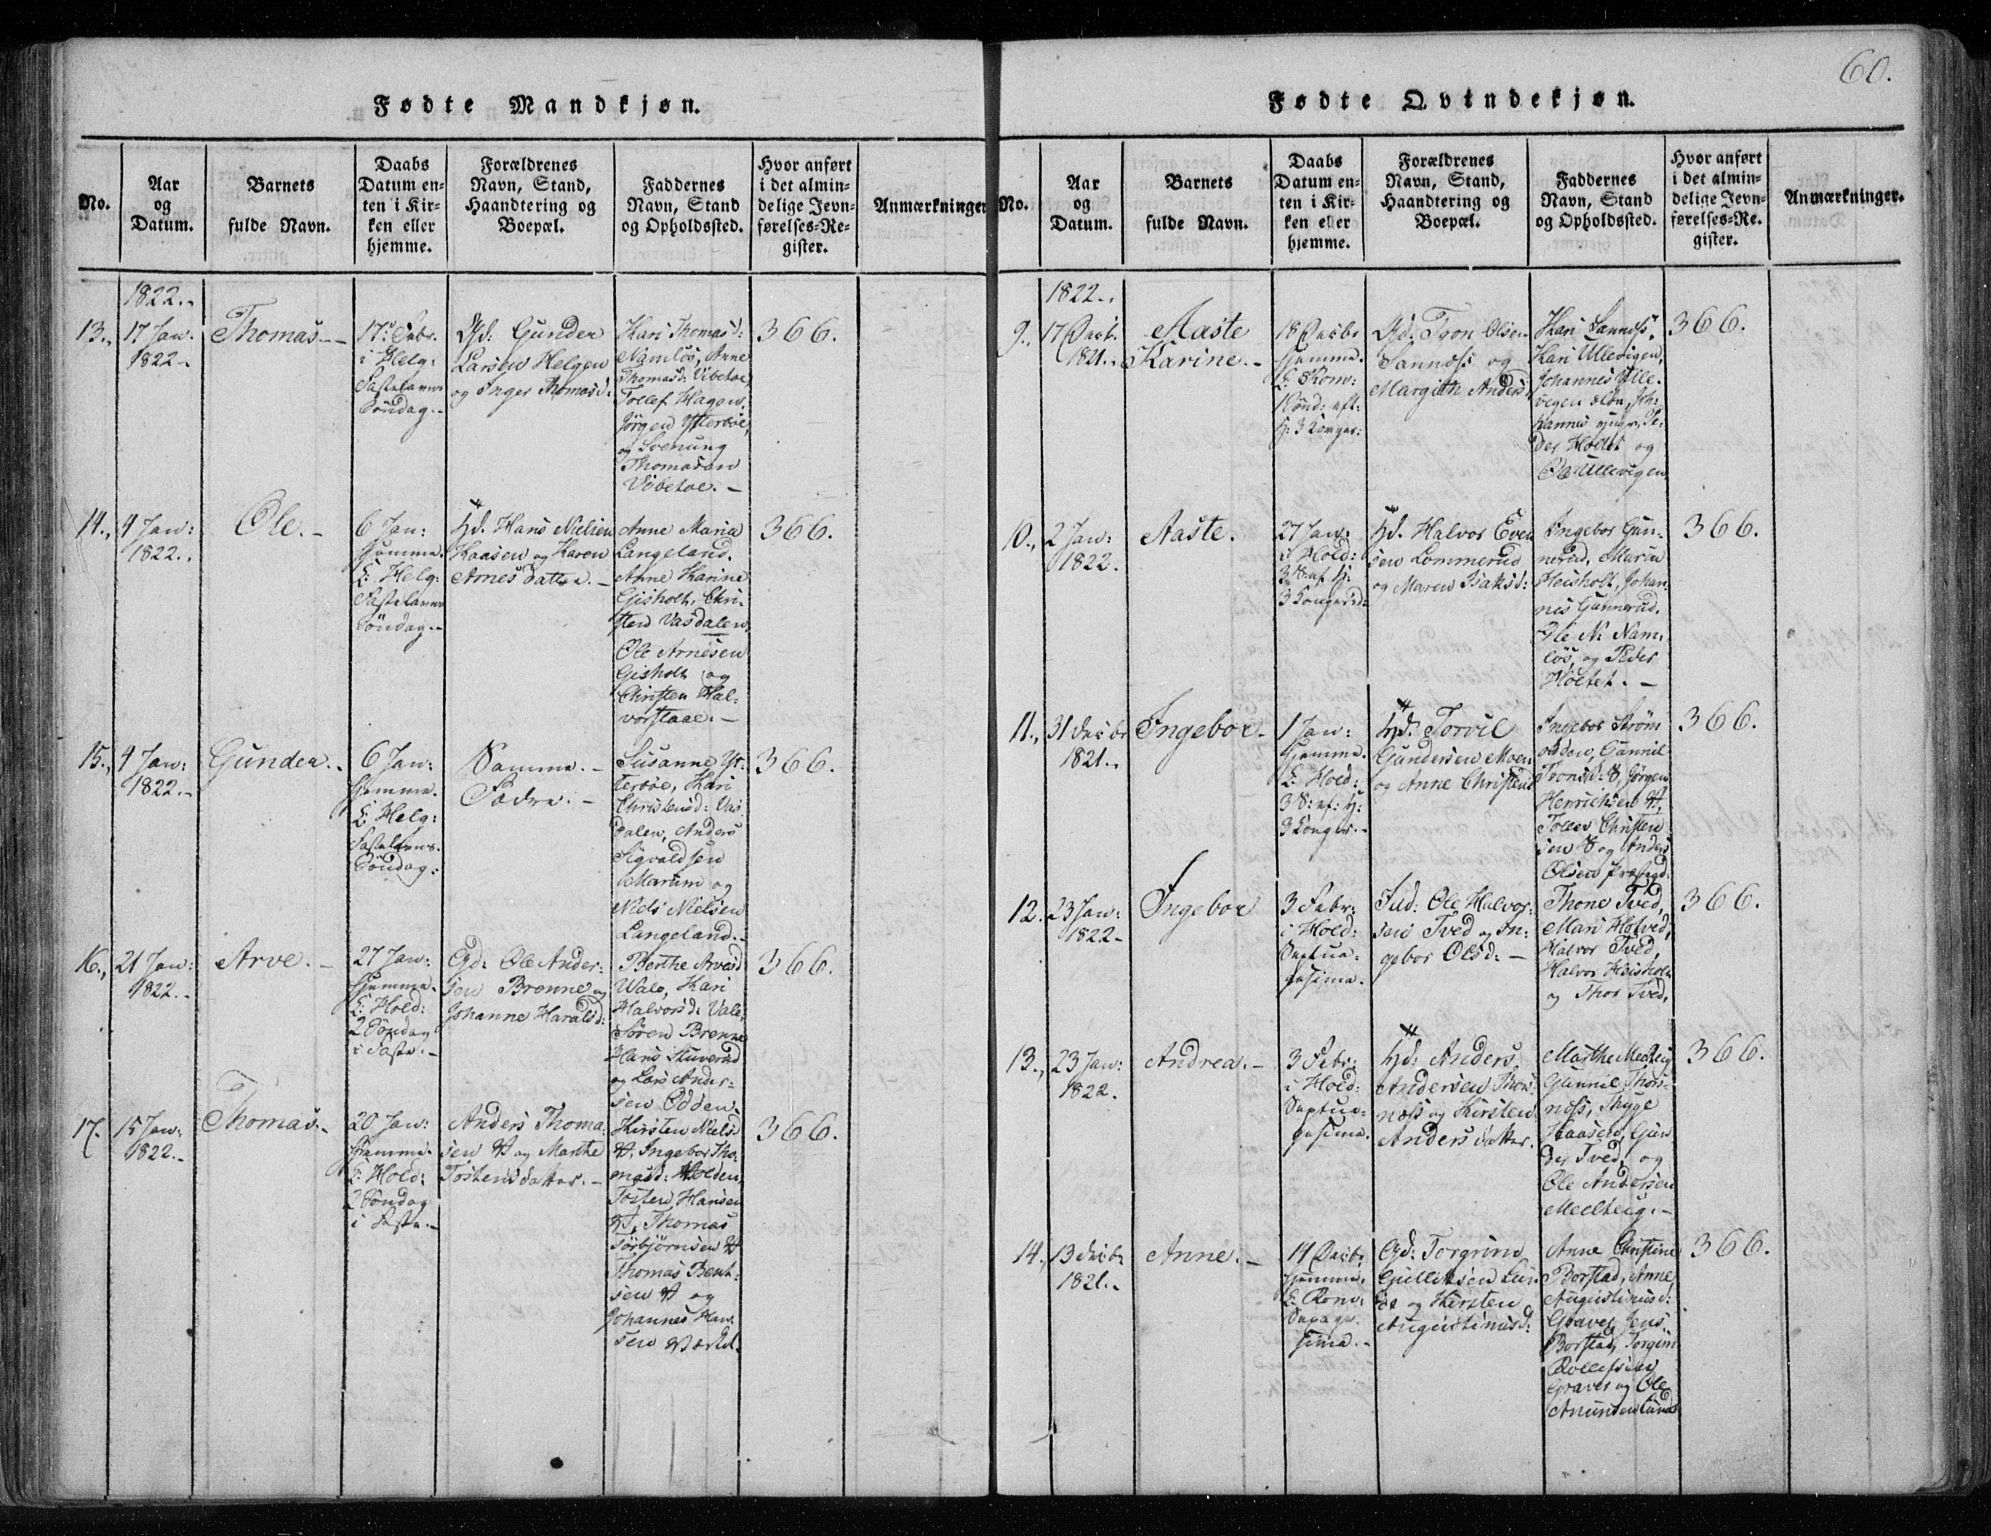 60.
Fødte Mandkjøn.
No.
Aar
og
Datum.
Barnets
fulde Navn.
Daabs
Datum en-
ten i Kir-
ken eller
hjemme.
Forældrenes
Navn, Stand,
Haandtering og
Boepæl.
Faddernes
Navn, Stand
og Opholdssted.
Hvor anført
i det almin-
delige Jevn-
førelses-Re-
gister.
Anmærkninger
1822..
13., 17 Jan:
1822..
Thomas
17de Febr.
i Helg:
Fastelavns
Söndag..
Gd: Gunder
Larsen Helgen
og Inger Thomasd:
Kari Thomasd:
Namlös, Anne
Thomasd: Vibetoe,
Tollef Hagen,
Jörgen Ytterböe,
og Svenung
Thomasen
Vibetoe. —
366.
14., 4 Jan:
1822..
Ole. —
6 Jan:
hjemme.
E: Helg:
Fastelavns
Söndag..
Hd. Hans Nielsen
Haasen og Karen
Arnesdatter. —
Anne Maria
Langeland.
Anne Karine
Gisholt, Chri-
sten Vasdalen,
Ole Arnesen
Gisholt og
Christen Hal-
vorstaae. —
366.
15., 4 Jan:
1822..
Gunder..
6 Jan:
hjemme.
E: Helg:
Fastelavns.
Söndag:
Samme. —
Fædre. —
Susanne Yt-
teröe, Kari
Christensd: Vas
dalen, Anders
Sigvaldsen
Marum og
Niels Nielsen
Langeland..
366.
16., 21 Jan:
1822..
Arve. —
27 Jan:
hjemme.
E: Hold:
2 Söndag
i Faste. —
Gd: Ole Ander-
sen Brenne og
Johanne Haralsd:
Berthe Arvesd
Wale, Kari
Halvorsd: Vale
Sören Brenne
Hans Stuverud
og Lars Ander-
sen Odden.
366.
17. 15 Jan:
1822..
Thomas..
20 Jan:
hjemme.
E: Hold:
2 Söndag
i Faste. —
Anders Thoma-
sen og Marthe
Tostensdatter. —
Kirsten Niels
Ingebor Tho-
masd: Holden,
Tosten Hansen
Thomas
Torbjörnsen
Thomas Bent-
sen og
Johannes Han-
sen
366.
Fødte Qvindekjøn.
No.
Aar
og
Datum.
Barnets
fulde Navn.
Daabs
Datum en-
ten i Kir-
ken eller
hjemme.
Forældrenes
Navn, Stand,
Haandtering og
Boepæl.
Faddernes
Navn, Stand
og Opholdssted.
Hvor anført
i det almin-
delige Jevn-
førelses-Re-
gister.
Anmærkninger.
1822..
9., 17 Decbr.
1821..
Aaste
Karine. —
18 Decbr
hjemme.
E: Rom:
1 Sönd: eft:
H: 3 Konger:
Gd: Tron Olsen
Sannæss og
Margith Andersd
Kari Sannæss,
Kari Ullevigen,
Johannes Ulle-
vigen
hannes yngr. Pe-
der Holtet og
Ole Ullevigen
366.
10., 2 Jan:
1822.
Aaste.
27 Jan:
i Hold:
3 S: ef H:
3 Konger:
Hd. Halvor Even
sen Lommerud
og Maren Isaksd:
Ingebor Gun-
nerud, Maren
Heisholt, Johan-
nes Gunnerud.
Ole N: Nam-
lös, og Peder
Holtet. —
366.
11., 31 Decbr
1821..
Ingebor
1 Jan:
hjemme.
E: Hold:
3 S: ef: H:
3 Konger. —
Hd: Torvil
Gundersen Moen
og Anne Christens
Ingebor Ström
odden, Gunnil
Tronsd: Jörgen
Henrichsen
Tollev Christen
sen og Anders
Olsen
366.
12. 23 Jan:
1822—
Ingebor
3 Febr:
i Hold:
Septua-
gesima.
Ind: Ole Halvor-
sen Tved og In-
gebor Olsd: —
Thone Tved,
Mari Hotved,
Halvor Tved,
Halvor Heisholt
og Thor Tved,
366.
13., 23 Jan:
1822.
Andrea. —
3 Febr:
i Hold:
Septua-
gesima.
Hd: Anders
Andersen Thors-
næss og Kirsten
Andersdatter.
Marthe Melteig
Gunnil Thors-
næss, Thyge
Haasen, Gun
der Tved, og
Ole Andersen
Melteig. —
366.
14. 13 Decbr
1821..
Anne. —
14 Decbr
hjemme,
E: Rom:
Sexage-
sima. —
Gd: Torgrim
Gulliksen Lun-
de og Kirsten
Augustinusd:
Anne Christine
Borstad, Anne
Augustinusd:
Graver, Jens
Borstad, Torgrim
Rollefsen
Graver og Ole
Amundsen Lunde
366.